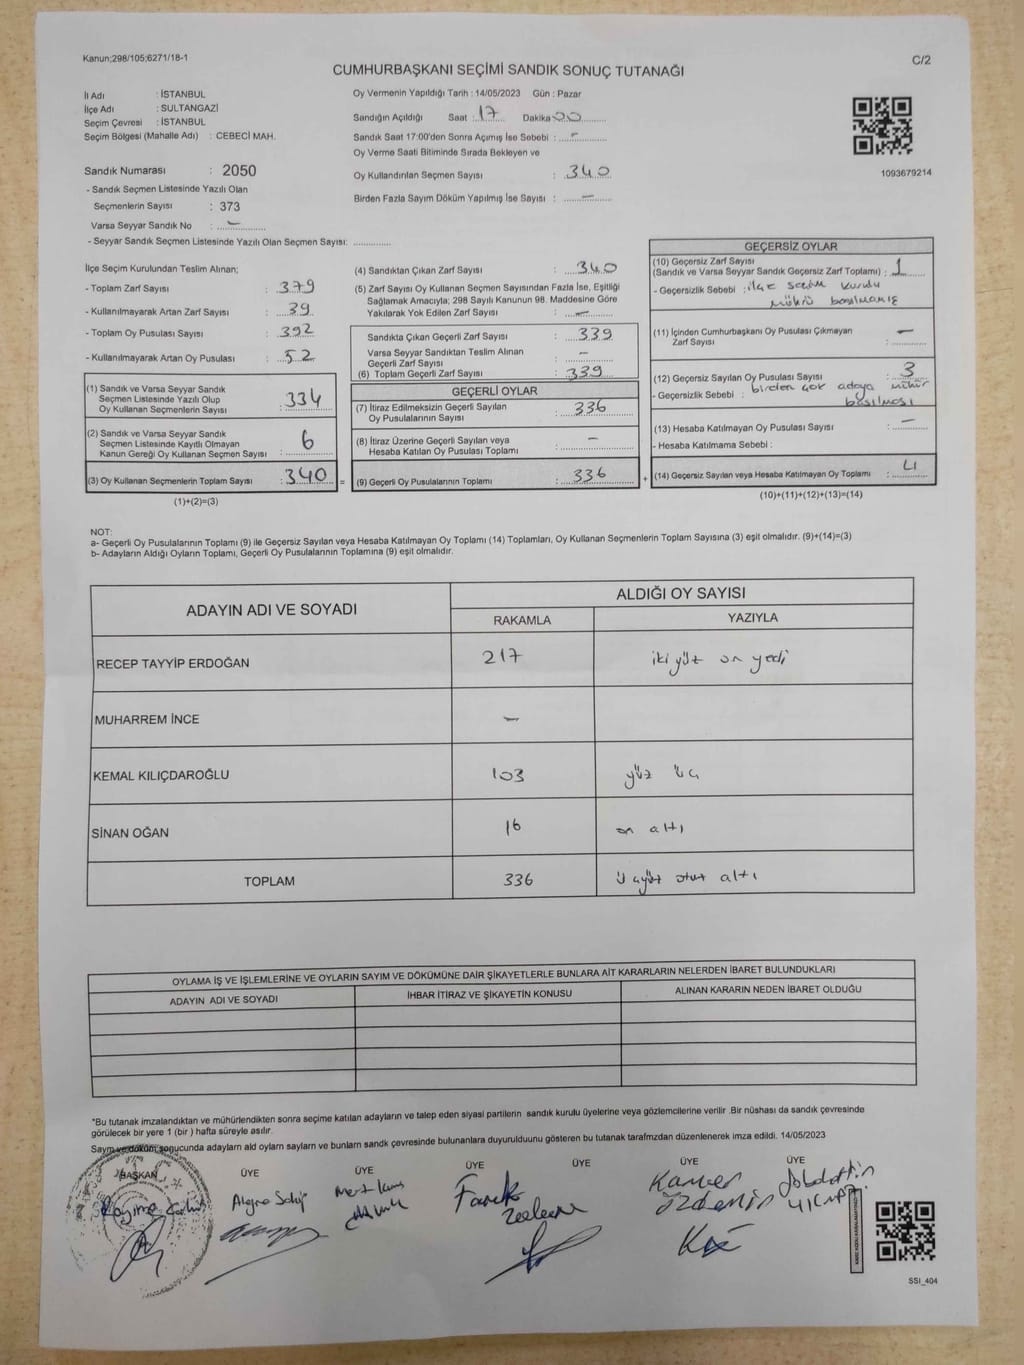 Kanun;298/105;6271/18-1
C/2
CUMHURBAŞKANI SEÇİMİ SANDIK SONUÇ TUTANAĞI
İl Adı : İSTANBUL
İlçe Adı : SULTANGAZİ
Seçim Çevresi : İSTANBUL
Seçim Bölgesi (Mahalle Adı) : CEBECİ MAH.
Sandık Numarası : 2050
- Sandık Seçmen Listesinde Yazılı Olan
Seçmenlerin Sayısı : 373
Varsa Seyyar Sandık No : –
- Seyyar Sandık Seçmen Listesinde Yazılı Olan Seçmen Sayısı: ..............
Oy Vermenin Yapıldığı Tarih : 14/05/2023 Gün : Pazar
Sandığın Açıldığı Saat : 17 Dakika 00
Sandık Saat 17:00'den Sonra Açımış İse Sebebi : –
Oy Verme Saati Bitiminde Sırada Bekleyen ve
Oy Kullandırılan Seçmen Sayısı : 340
Birden Fazla Sayım Döküm Yapılmış İse Sayısı : –
1093679214
İlçe Seçim Kurulundan Teslim Alınan;
- Toplam Zarf Sayısı : 379
- Kullanılmayarak Artan Zarf Sayısı : 39
- Toplam Oy Pusulası Sayısı : 392
- Kullanılmayarak Artan Oy Pusulası : 52
(1) Sandık ve Varsa Seyyar Sandık
Seçmen Listesinde Yazılı Olup
Oy Kullanan Seçmenlerin Sayısı : 334
(2) Sandık ve Varsa Seyyar Sandık
Seçmen Listesinde Kayıtlı Olmayan
Kanun Gereği Oy Kullanan Seçmen Sayısı : 6
(3) Oy Kullanan Seçmenlerin Toplam Sayısı : 340 =
(1)+(2)=(3)
(4) Sandıktan Çıkan Zarf Sayısı : 340
(5) Zarf Sayısı Oy Kullanan Seçmen Sayısından Fazla İse, Eşitliği
Sağlamak Amacıyla; 298 Sayılı Kanunun 98. Maddesine Göre
Yakılarak Yok Edilen Zarf Sayısı : –
Sandıkta Çıkan Geçerli Zarf Sayısı : 339
Varsa Seyyar Sandıktan Teslim Alınan
Geçerli Zarf Sayısı : –
(6) Toplam Geçerli Zarf Sayısı : 339
GEÇERLİ OYLAR
(7) İtiraz Edilmeksizin Geçerli Sayılan
Oy Pusulalarının Sayısı : 336
(8) İtiraz Üzerine Geçerli Sayılan veya
Hesaba Katılan Oy Pusulası Toplamı : –
(9) Geçerli Oy Pusulalarının Toplamı : 336 +
GEÇERSİZ OYLAR
(10) Geçersiz Zarf Sayısı
(Sandık ve Varsa Seyyar Sandık Geçersiz Zarf Toplamı) : 1
- Geçersizlik Sebebi : ilçe seçim kurulu
mührü basılmamış
(11) İçinden Cumhurbaşkanı Oy Pusulası Çıkmayan
Zarf Sayısı : –
(12) Geçersiz Sayılan Oy Pusulası Sayısı : 3
- Geçersizlik Sebebi : birden çok adaya mühür
basılması
(13) Hesaba Katılmayan Oy Pusulası Sayısı : –
- Hesaba Katılmama Sebebi :
(14) Geçersiz Sayılan veya Hesaba Katılmayan Oy Toplamı : 4
(10)+(11)+(12)+(13)=(14)
NOT:
a- Geçerli Oy Pusulalarının Toplamı (9) ile Geçersiz Sayılan veya Hesaba Katılmayan Oy Toplamı (14) Toplamları, Oy Kullanan Seçmenlerin Toplam Sayısına (3) eşit olmalıdır. (9)+(14)=(3)
b- Adayların Aldığı Oyların Toplamı, Geçerli Oy Pusulalarının Toplamına (9) eşit olmalıdır.
ADAYIN ADI VE SOYADI ALDIĞI OY SAYISI
RAKAMLA YAZIYLA
RECEP TAYYİP ERDOĞAN 217 iki yüz on yedi
MUHARREM İNCE –
KEMAL KILIÇDAROĞLU 103 yüz üç
SİNAN OĞAN 16 on altı
TOPLAM 336 üçyüz otuz altı
OYLAMA İŞ VE İŞLEMLERİNE VE OYLARIN SAYIM VE DÖKÜMÜNE DAİR ŞİKAYETLERLE BUNLARA AİT KARARLARIN NELERDEN İBARET BULUNDUKLARI
ADAYIN ADI VE SOYADI İHBAR İTİRAZ VE ŞİKAYETİN KONUSU ALINAN KARARIN NEDEN İBARET OLDUĞU
*Bu tutanak imzalandıktan ve mühürlendikten sonra seçime katılan adayların ve talep eden siyasi partilerin sandık kurulu üyelerine veya gözlemcilerine verilir .Bir nüshası da sandık çevresinde
görülecek bir yere 1 (bir ) hafta süreyle asılır.
Sayım ve döküm sonucunda adayların ald oyların sayların ve bunların sandk çevresinde bulunanlara duyurulduunu gösteren bu tutanak tarafmzdan düzenlenerek imza edildi. 14/05/2023
BAŞKAN ÜYE ÜYE ÜYE ÜYE ÜYE ÜYE
Faruk
Kamber
Özdemir
SSI_404